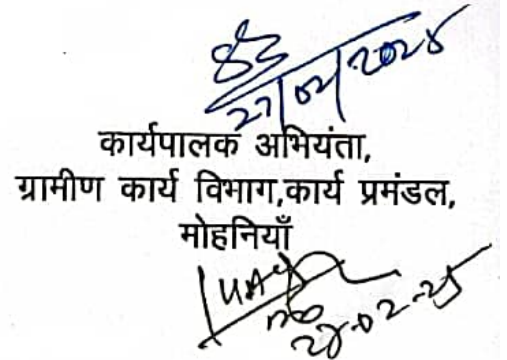 27/02/2025
कार्यपालक अभियंता,
ग्रामीण कार्य विभाग,कार्य प्रमंडल,
मोहनियाँ